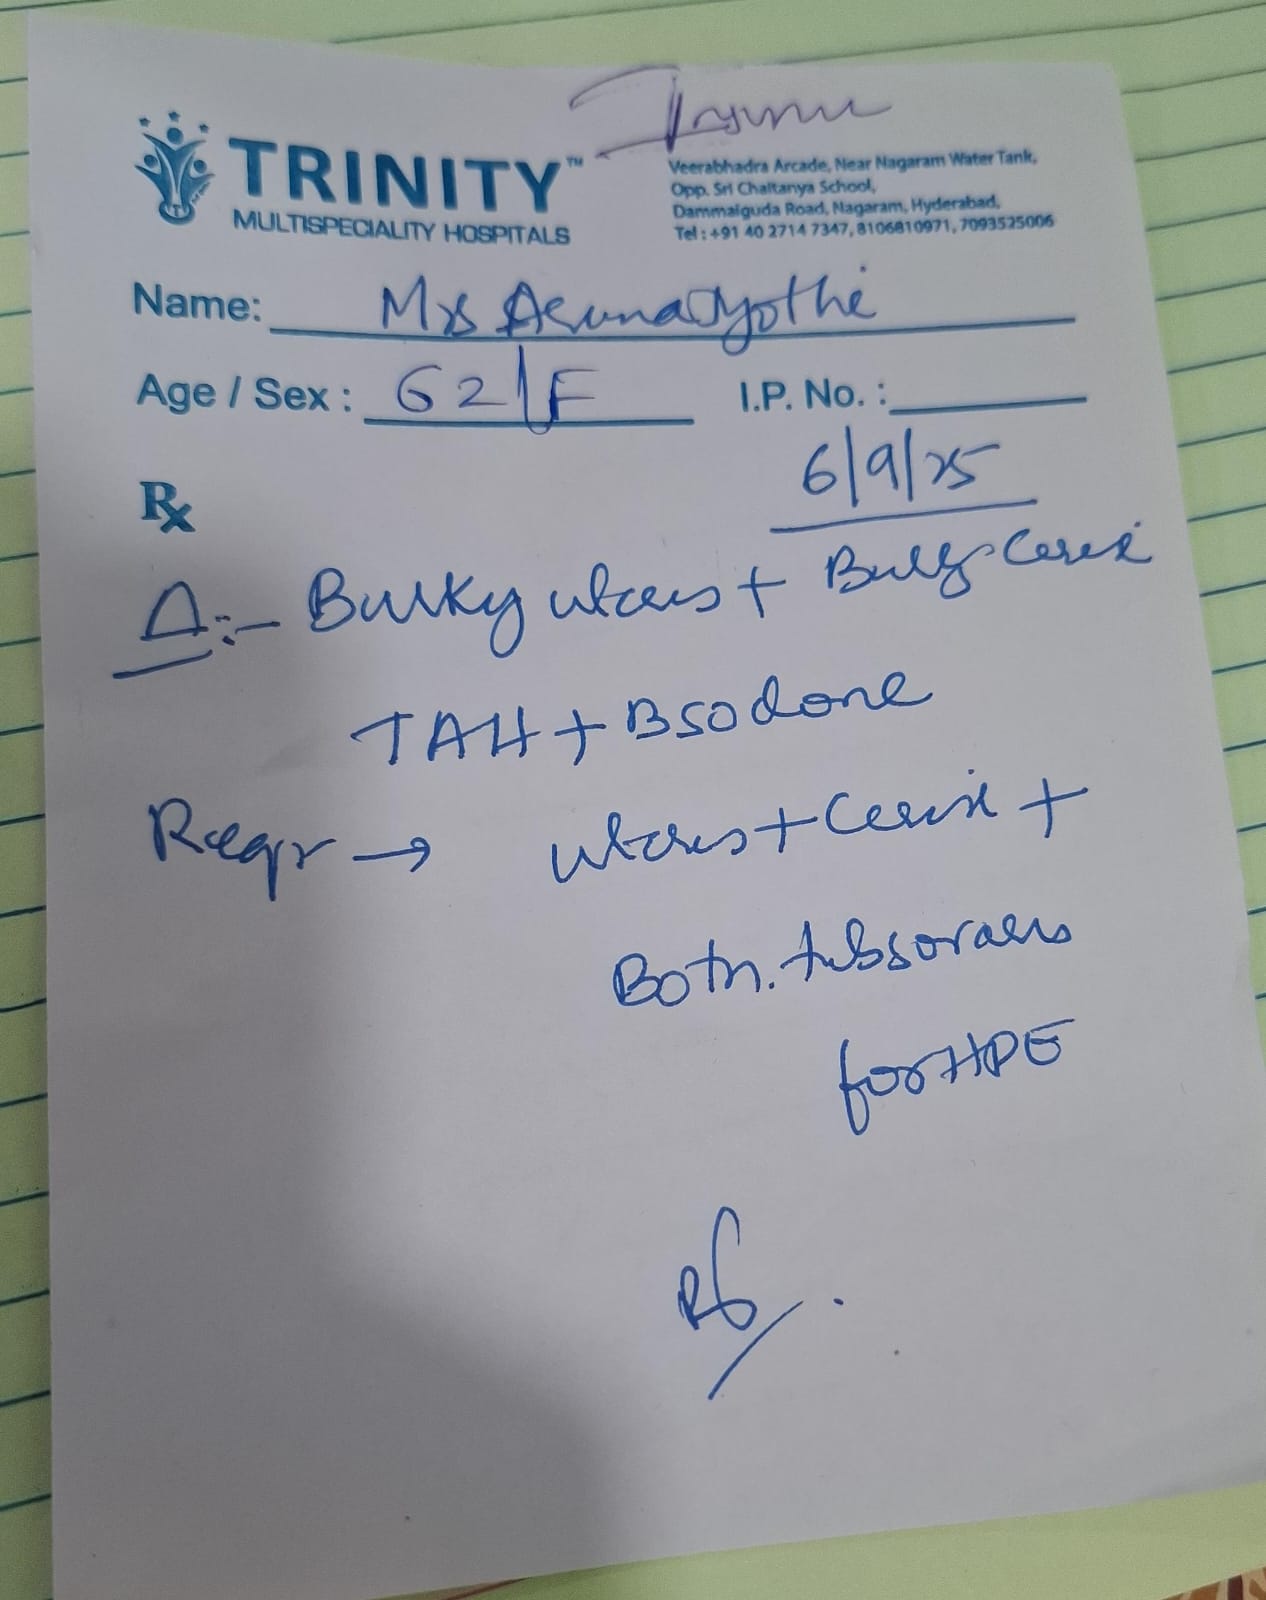 TRINITY™
MULTISPECIALITY HOSPITALS
Veerabhadra Arcade, Near Nagaram Water Tank,
Opp. Sri Chaitanya School,
Dammaiguda Road, Nagaram, Hyderabad,
Tel : +91 40 2714 7347, 8106810971, 7093525006
Name: Mrs Aruna Jyothi
Age / Sex : 62/F I.P. No. :
6/9/25
Rx
Δ:- Bulky uterus + Bulky Cervix
TAH + BSO done
Reqr → uterus + Cervix +
Both tubes ovaries
for HPE